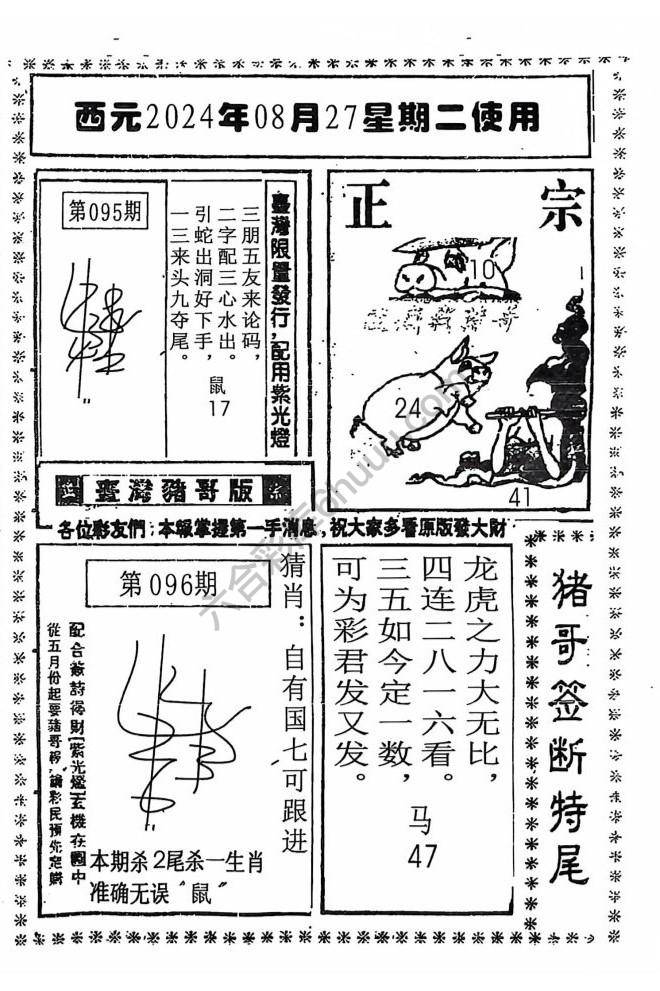 西元2024年08月27星期二使用
第095期
三朋五友来论码，
二字配三心水出。
引蛇出洞好下手，
一三来头九夺尾。
鼠
17
臺灣限量發行，配用紫光燈
正宗
10
24
41
臺灣豬哥版
各位彩友們：本報掌握第一手消息，祝大家多看原版發大財
第096期
猜肖：自有国七可跟进
配合簽詩得財[紫光燈]玄機在圖中
從五月份起要豬哥報，請彩民預先定購
本期杀2尾杀一生肖
准确无误“鼠”
龙虎之力大无比，
四连二八一六看。
三五如今定一数，
可为彩君发又发。
马
47
猪哥签断特尾